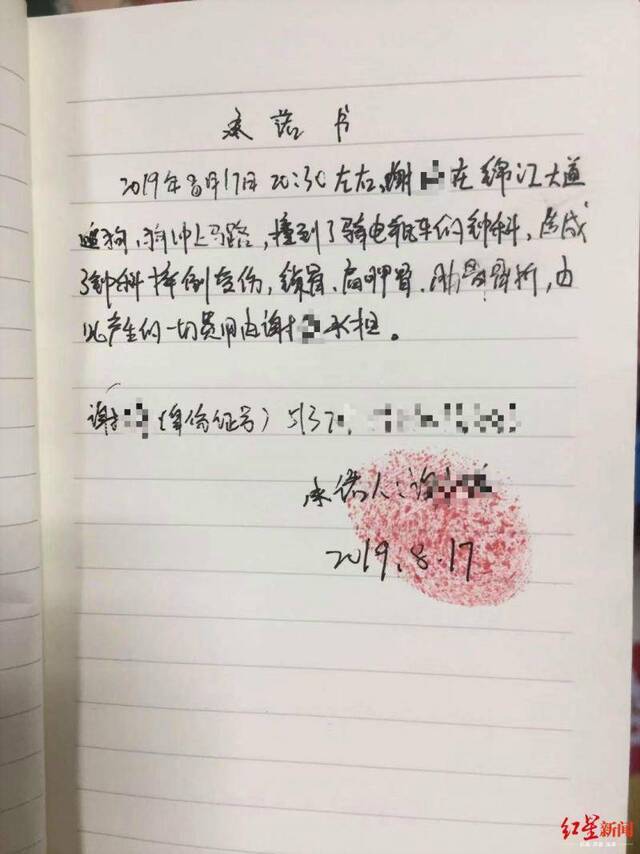 承诺书
2019年8月17日20:30左右,谢 在锦江大道
遛狗,狗冲上马路,撞到了骑电瓶车的钟科,造成
了钟科摔倒受伤,锁骨、肩胛骨、肋骨骨折,由
此产生的一切费用由谢 承担。
谢 (身份证号) 513
承诺人:谢
2019.8.17
红星新闻